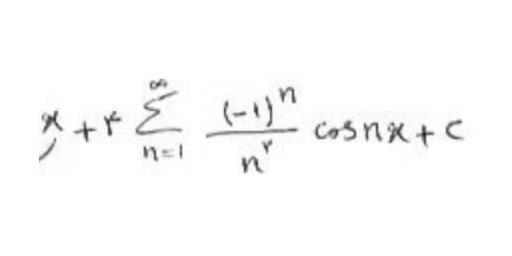 x + ۴ ∑_{n=1}^{∞} \frac{(-1)^n}{n^۲} cos nx + c